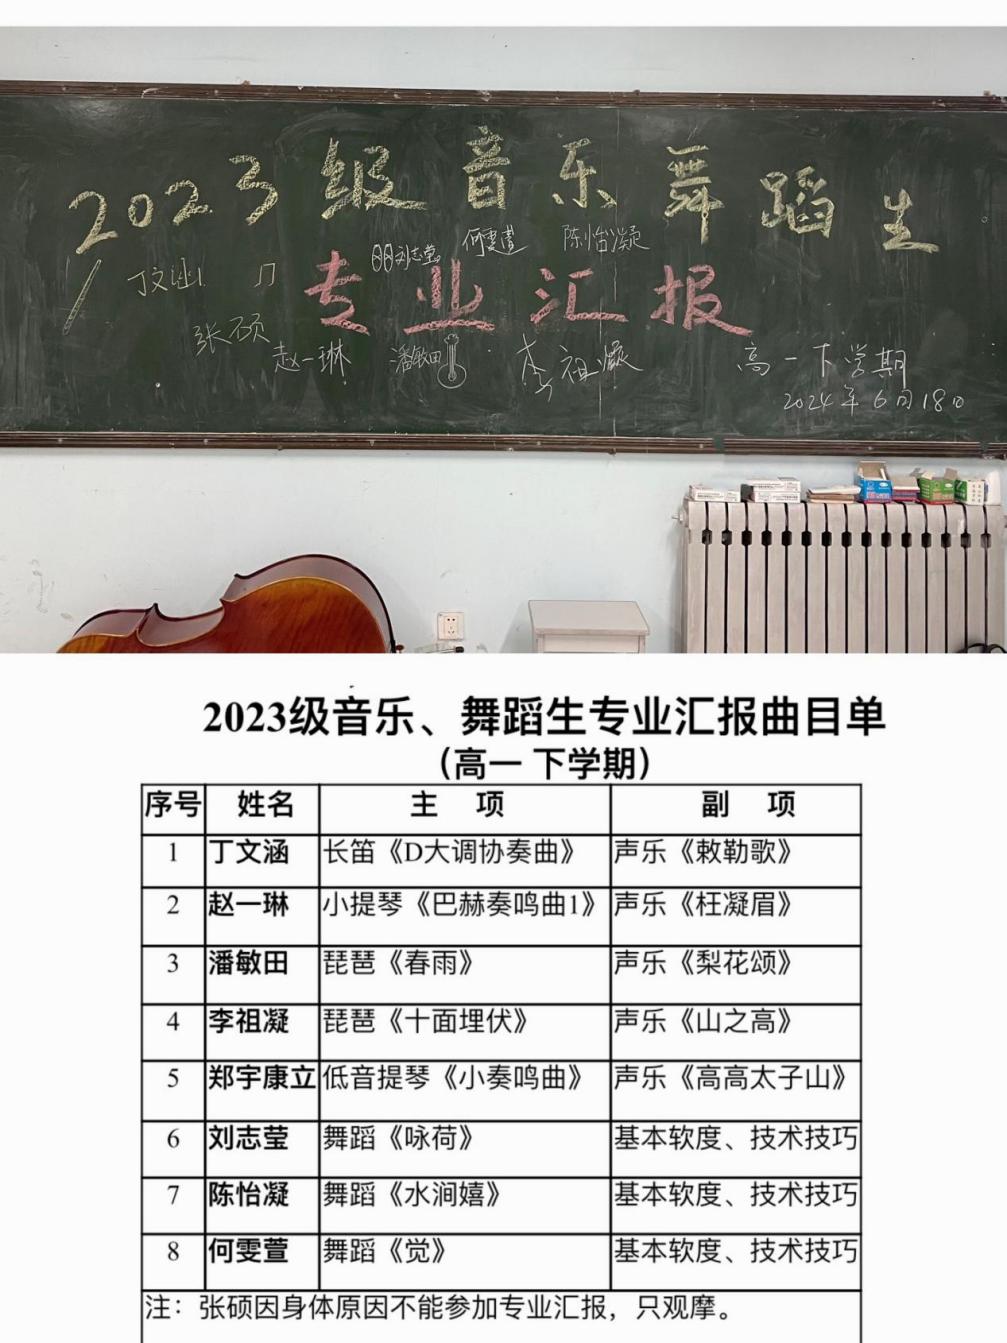 2023级音乐舞蹈生
刘志莹 何雯萱 陈怡凝
丁文涵
专业汇报
张硕
赵一琳 潘敏田 李祖凝 高一下学期
2024年6月18日
2023级音乐、舞蹈生专业汇报曲目单
（高一 下学期）
序号 姓名 主 项 副 项
1 丁文涵 长笛《D大调协奏曲》 声乐《敕勒歌》
2 赵一琳 小提琴《巴赫奏鸣曲1》 声乐《枉凝眉》
3 潘敏田 琵琶《春雨》 声乐《梨花颂》
4 李祖凝 琵琶《十面埋伏》 声乐《山之高》
5 郑宇康立 低音提琴《小奏鸣曲》 声乐《高高太子山》
6 刘志莹 舞蹈《咏荷》 基本软度、技术技巧
7 陈怡凝 舞蹈《水涧嬉》 基本软度、技术技巧
8 何雯萱 舞蹈《觉》 基本软度、技术技巧
注：张硕因身体原因不能参加专业汇报，只观摩。